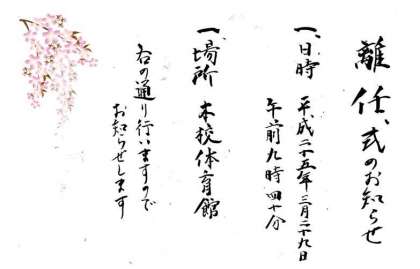 離任式のお知らせ
一、日時 平成二十五年三月二十九日
午前九時四十分
一、場所 本校体育館
右の通り行いますので
お知らせします